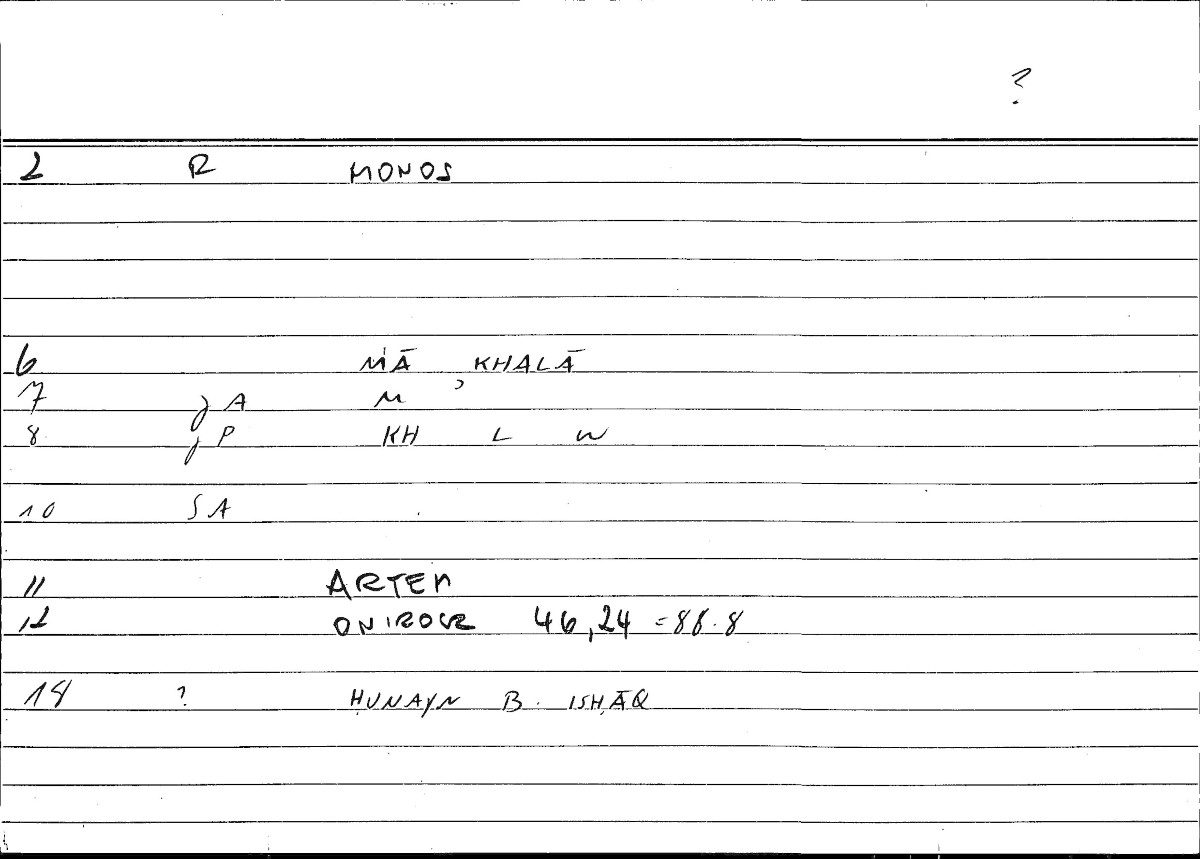 ?
2 R MONOS
6 MĀ KHALĀ
7 jA M
8 jP KH L W
10 SA
11 ARTEM
12 ONIROCR 46,24 =88.8
18 ? ḤUNAYN B. ISḤĀQ